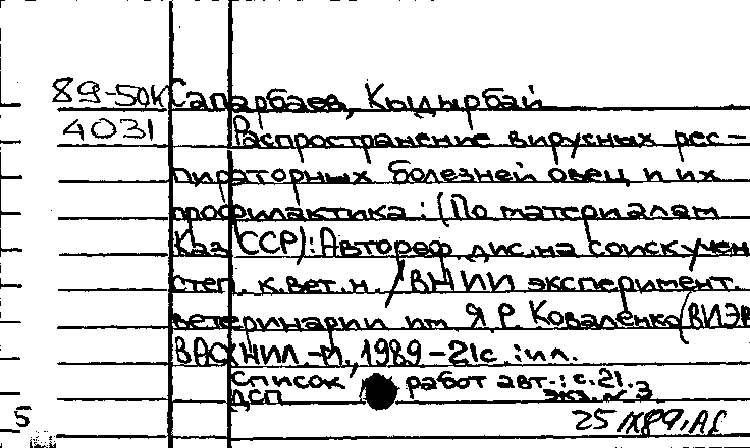 89-50К Сапарбаев, Кыдырбай
4031 Распространение вирусных рес-
пираторных болезней овец и их
профилактика: (По материалам
Каз ССР): Автореф. дис. на соиск учен
степ. к. вет. н. / ВНИИ эксперимент.
ветеринарии им Я Р Коваленко (ВИЭВ
ВАСХНИЛ. -М, 1989 -21с. : ил.
Список работ авт.: с. 21.
ДСП экз. № 3
5 25